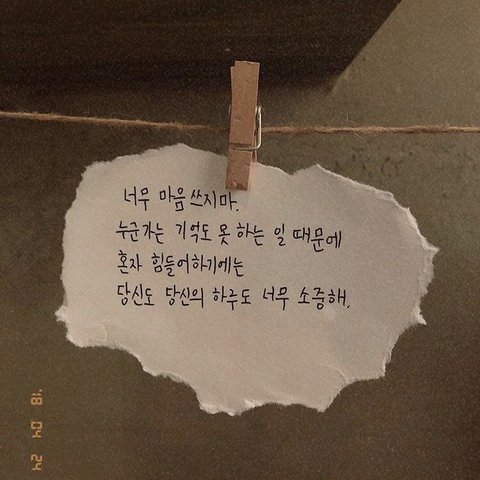 너무 마음 쓰지마.
누군가는 기억도 못 하는 일 때문에
혼자 힘들어하기에는
당신도 당신의 하루도 너무 소중해.
'18 04 24